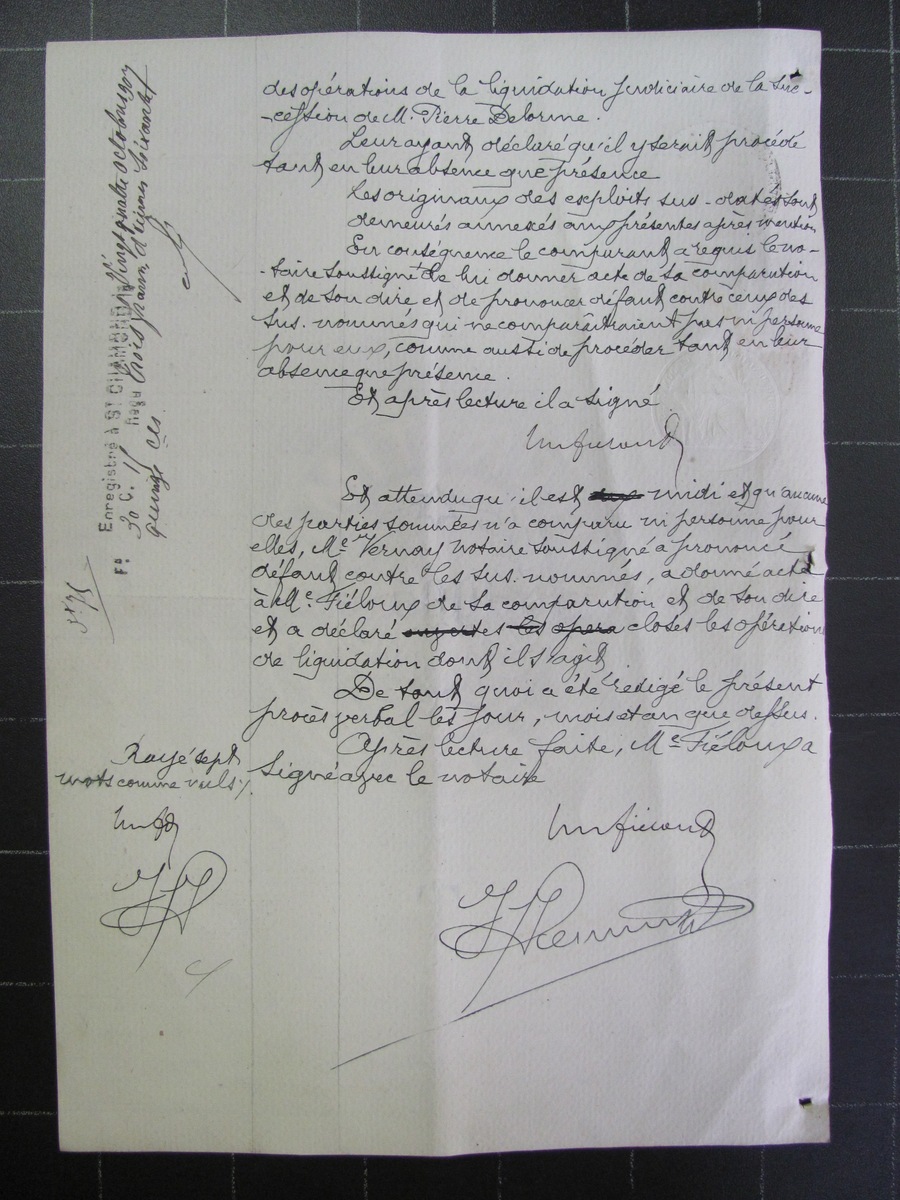 des opérations de la liquidation judiciaire de la suc-
-cession de M. Pierre Delorme.
Leur ayant déclaré qu'il y serait procédé
tant en leur absence que présence
Les originaux des exploits sus-datés sont
demeurés annexés aux présentes après mention
En conséquence le comparant a requis le no-
-taire soussigné de lui donner acte de sa comparution
et de son dire et de prononcer défaut contre ceux des
sus.nommés qui ne comparaîtraient pas ni personne
pour eux, comme aussi de procéder tant en leur
absence que présence.
Et après lecture il a signé
Et attendu qu'il est midi et qu'aucune
des parties sommées n'a comparu ni personne pour
elles, Me Vernay notaire soussigné a prononcé
défaut contre les sus.nommés, a donné acte
à Me Fiéloux de sa comparution et de son dire
et a déclaré ouvertes les opera closes les opération
de liquidation dont il s'agit
De tout quoi a été rédigé le présent
procès verbal les jour, mois et an que dessus.
Après lecture faite, Me Fiéloux a
signé avec le notaire
Rayé sept
mots comme nuls
Enregistré à St CHAMOND le Vingt quatre octobre 1907
Fo 30 C. 15 Reçu trois francs
quinze ces